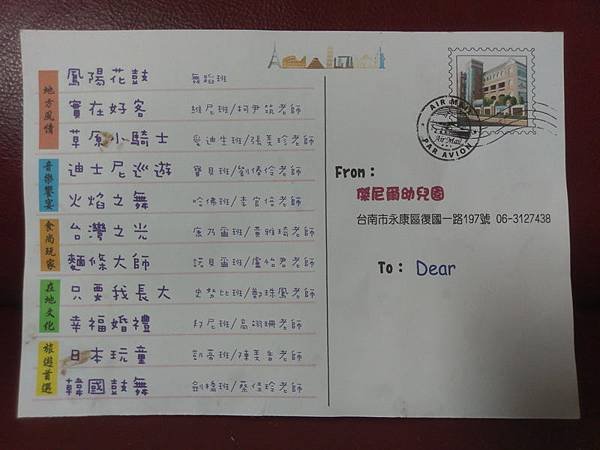 地方風情
鳳陽花鼓 舞蹈班
實在好客 維尼班/柯尹筑老師
草原小騎士 愛迪生班/張美玲老師
音樂饗宴
迪士尼巡遊 寶貝班/劉倩伶老師
火焰之舞 哈佛班/李宜倍老師
食尚玩家
台灣之光 康乃爾班/黃雅琦老師
麵條大師 諾貝爾班/盧怡君老師
在地文化
只要我長大 史努比班/鄭珠鳳老師
幸福婚禮 邦尼班/高翊珊老師
旅遊首選
日本玩童 凱蒂班/陳美香老師
韓國鼓舞 劍橋班/蔡佳玲老師
AIR MAIL
Air Mail
PAR AVION
From：
傑尼爾幼兒園
台南市永康區復國一路197號 06-3127438
To： Dear